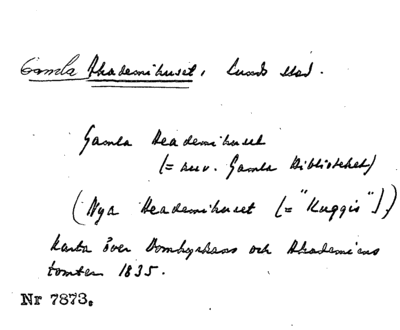 Gamla Akademihuset, Lunds stad.
Gamla Akademihuset
(= nuv. Gamla Biblioteket)
(Nya Akademihuset (= "Kuggis"))
Karta över Domkyrkans och Akademiens
tomter 1835.
Nr 7873.